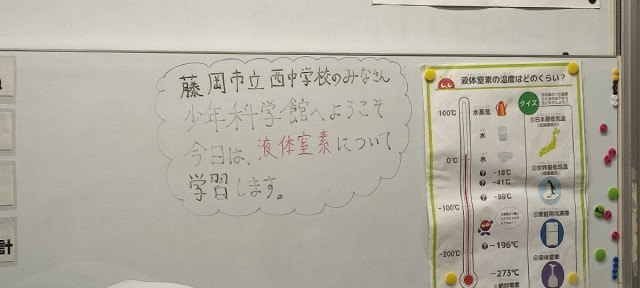 藤岡市立西中学校のみなさん
少年科学館へようこそ
今日は、液体窒素について
学習します。
計
液体窒素の温度はどのくらい?
クイズ
100℃
水蒸気
水
0℃
氷
-18℃
-41℃
-89℃
-100℃
-196℃
-200℃
-273℃
①日本最低気温
②世界最低気温
③家庭用冷凍庫
④液体窒素